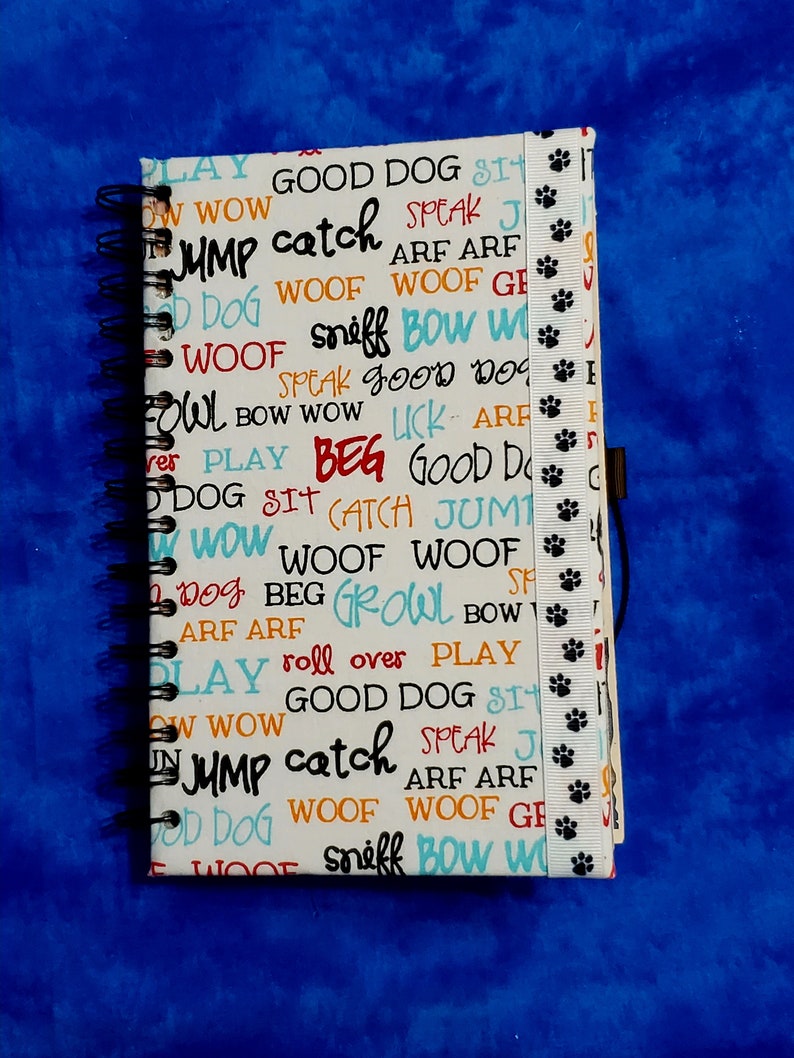 PLAY GOOD DOG SIT
OW WOW catch SPEAK J
UN JUMP ARF ARF
WOOF WOOF GR
OOD DOG sniff BOW WO
E WOOF
SPEAK GOOD DOG
GROWL BOW WOW LICK ARF
over PLAY BEG GOOD DO
D DOG SIT CATCH JUMP
W WOW WOOF WOOF
DOG BEG GROWL SP
BOW W
ARF ARF
PLAY roll over PLAY
GOOD DOG SIT
OW WOW catch SPEAK J
UN JUMP ARF ARF
WOOF WOOF GR
OOD DOG sniff BOW WO
E WOOF